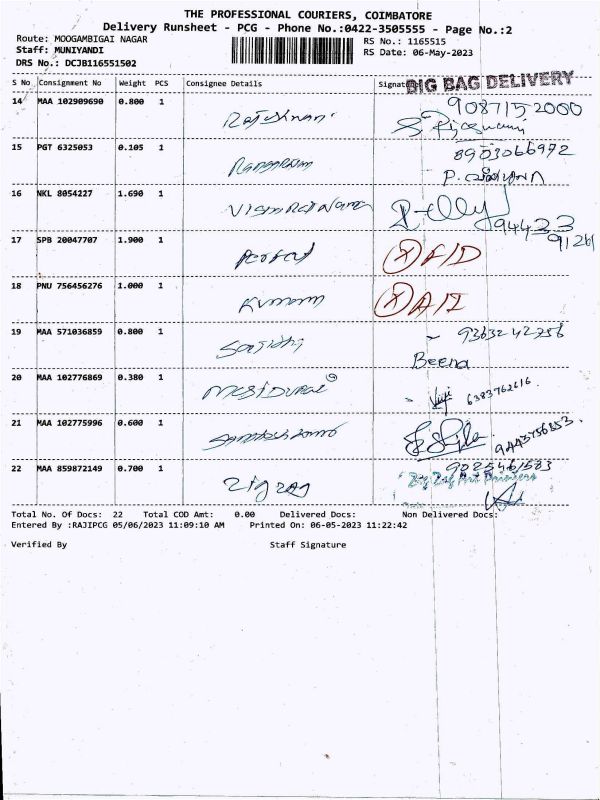 THE PROFESSIONAL COURIERS, COIMBATORE
Delivery Runsheet - PCG - Phone No.:0422-3505555 - Page No.:2
Route: MOOGAMBIGAI NAGAR
Staff: MUNIYANDI
DRS No.: DCJB116551502
RS No.: 1165515
RS Date: 06-May-2023
S No Consignment No Weight PCS Consignee Details Signat
BIG BAG DELIVERY
14 MAA 102909690 0.800 1 9087152000
15 PGT 6325053 0.105 1 8903066972
P.
16 NKL 8054227 1.690 1 94433
9126
17 SPB 20047707 1.900 1 Perfect
18 PNU 756456276 1.000 1 Kumaran
19 MAA 571036859 0.800 1 9363242256
Beena
20 MAA 102776869 0.380 1 Viji 6383762616.
21 MAA 102775996 0.600 1 9443756853.
22 MAA 859872149 0.700 1 Zig zag 9025461583
Zig Zag Art Printers
Total No. Of Docs: 22 Total COD Amt: 0.00 Delivered Docs: Non Delivered Docs:
Entered By :RAJIPCG 05/06/2023 11:09:10 AM Printed On: 06-05-2023 11:22:42
Verified By Staff Signature